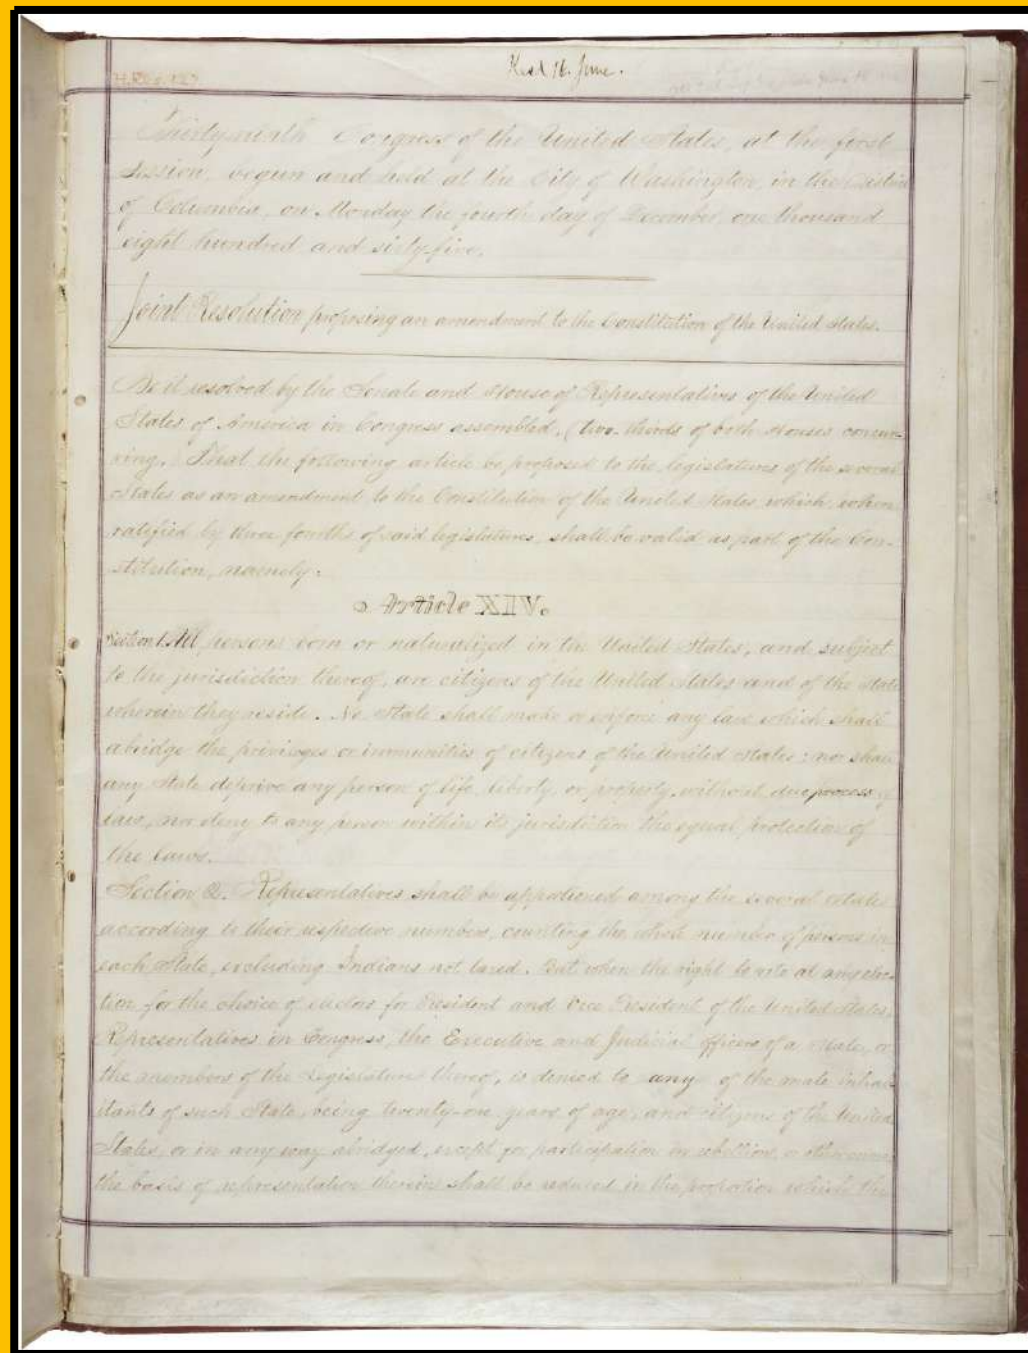 H.Res. 127.
Recd 16. June.
Thirty-ninth Congress of the United States, at the first
Session, begun and held at the City of Washington, in the District
of Columbia, on Monday the fourth day of December, one thousand
eight hundred and sixty-five.
Joint Resolution proposing an amendment to the Constitution of the United States.
Be it resolved by the Senate and House of Representatives of the United
States of America in Congress assembled, (two-thirds of both Houses concur-
ring,) That the following article be proposed to the legislatures of the several
States as an amendment to the Constitution of the United States, which, when
ratified by three fourths of said legislatures, shall be valid as part of the Con-
stitution, namely:
Article XIV.
Section 1. All persons born or naturalized in the United States, and subject
to the jurisdiction thereof, are citizens of the United States and of the State
wherein they reside. No State shall make or enforce any law which shall
abridge the privileges or immunities of citizens of the United States; nor shall
any State deprive any person of life, liberty, or property, without due process of
law, nor deny to any person within its jurisdiction the equal protection of
the laws.
Section 2. Representatives shall be apportioned among the several States
according to their respective numbers, counting the whole number of persons in
each State, excluding Indians not taxed. But when the right to vote at any elec-
tion for the choice of electors for President and Vice President of the United States,
Representatives in Congress, the Executive and Judicial officers of a State, or
the members of the Legislature thereof, is denied to any of the male inhab-
itants of such State, being twenty-one years of age, and citizens of the United
States, or in any way abridged, except for participation in rebellion, or other crime,
the basis of representation therein shall be reduced in the proportion which the